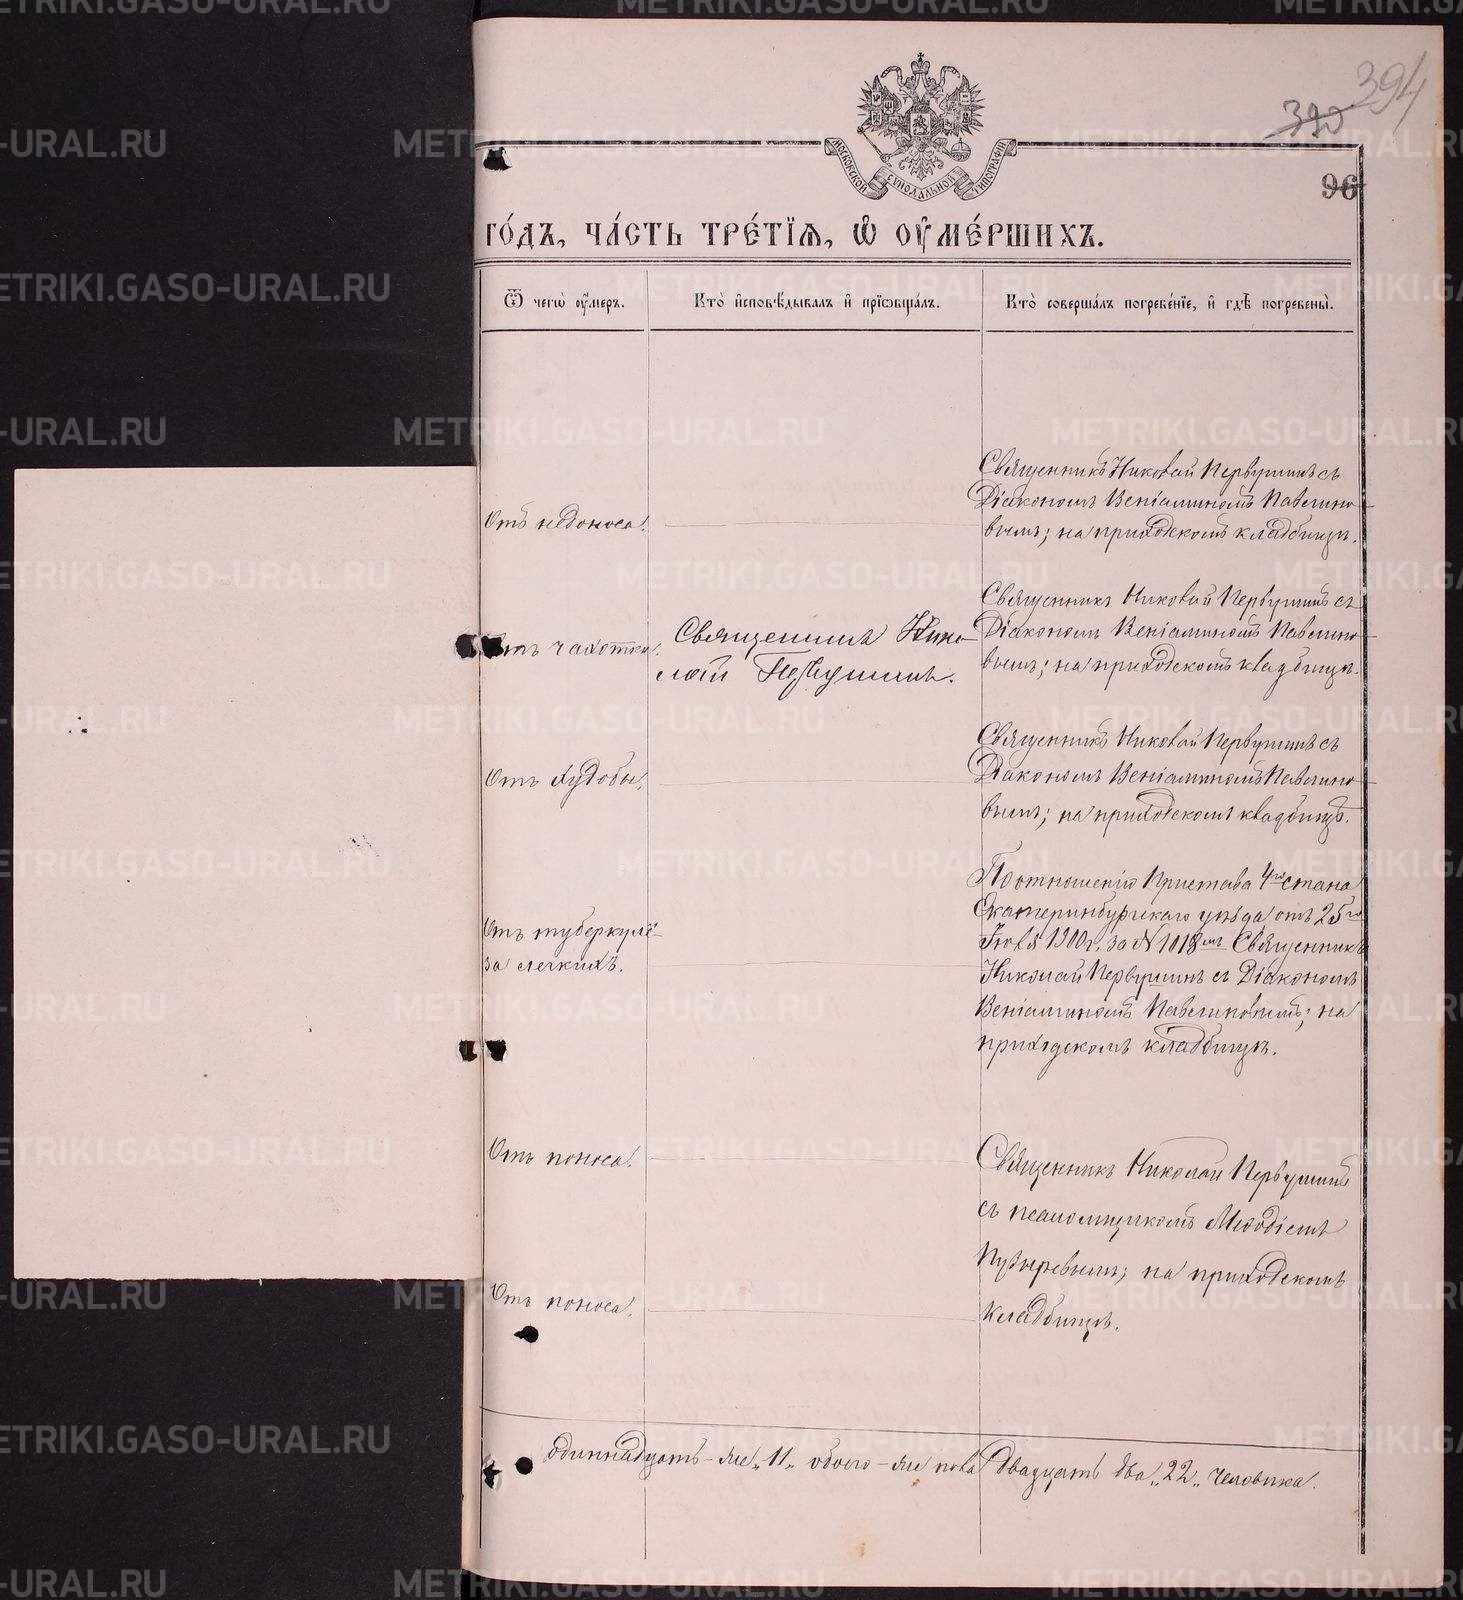 394
390
96
МОСКОВСКОЙ СѴНОДАЛЬНОЙ ТИПОГРАФІИ
го́дъ, ча́сть тре́тїѧ, ѡ҆ ᲂу҆ме́ршихъ.
Ѿ чегѡ̀ ᲂу҆́меръ.
Кто̀ и҆сповѣ́дывалъ и҆ прїѡбща́лъ.
Кто̀ соверша́лъ погребе́нїе, и҆ гдѣ̀ погребены̀.
Отъ недоноса.
Священникъ Николай Первушинъ съ
Діакономъ Веніаминомъ Павлино-
вымъ; на приходскомъ кладбищѣ.
Отъ чахотки.
Священникъ Нико-
лай Первушинъ.
Священникъ Николай Первушинъ съ
Діакономъ Веніаминомъ Павлино-
вымъ; на приходскомъ кладбищѣ.
Отъ худобы.
Священникъ Николай Первушинъ съ
Діакономъ Веніаминомъ Павлино-
вымъ; на приходскомъ кладбищѣ.
Отъ туберкулё-
за легкихъ.
По отношенію Пристава 4го стана
Екатеринбургскаго уѣзда отъ 25го
Іюля 1900г. за № 1018мъ Священникъ
Николай Первушинъ съ Діакономъ
Веніаминомъ Павлиновымъ; на
приходскомъ кладбищѣ.
Отъ поноса.
Священникъ Николай Первушинъ
съ псаломщикомъ Меѳодіемъ
Пузыревымъ; на приходскомъ
кладбищѣ.
Отъ поноса.
одиннадцать-же „11„ обоего-же пола двадцать два „22„ человѣка.
METRIKI.GASO-URAL.RU